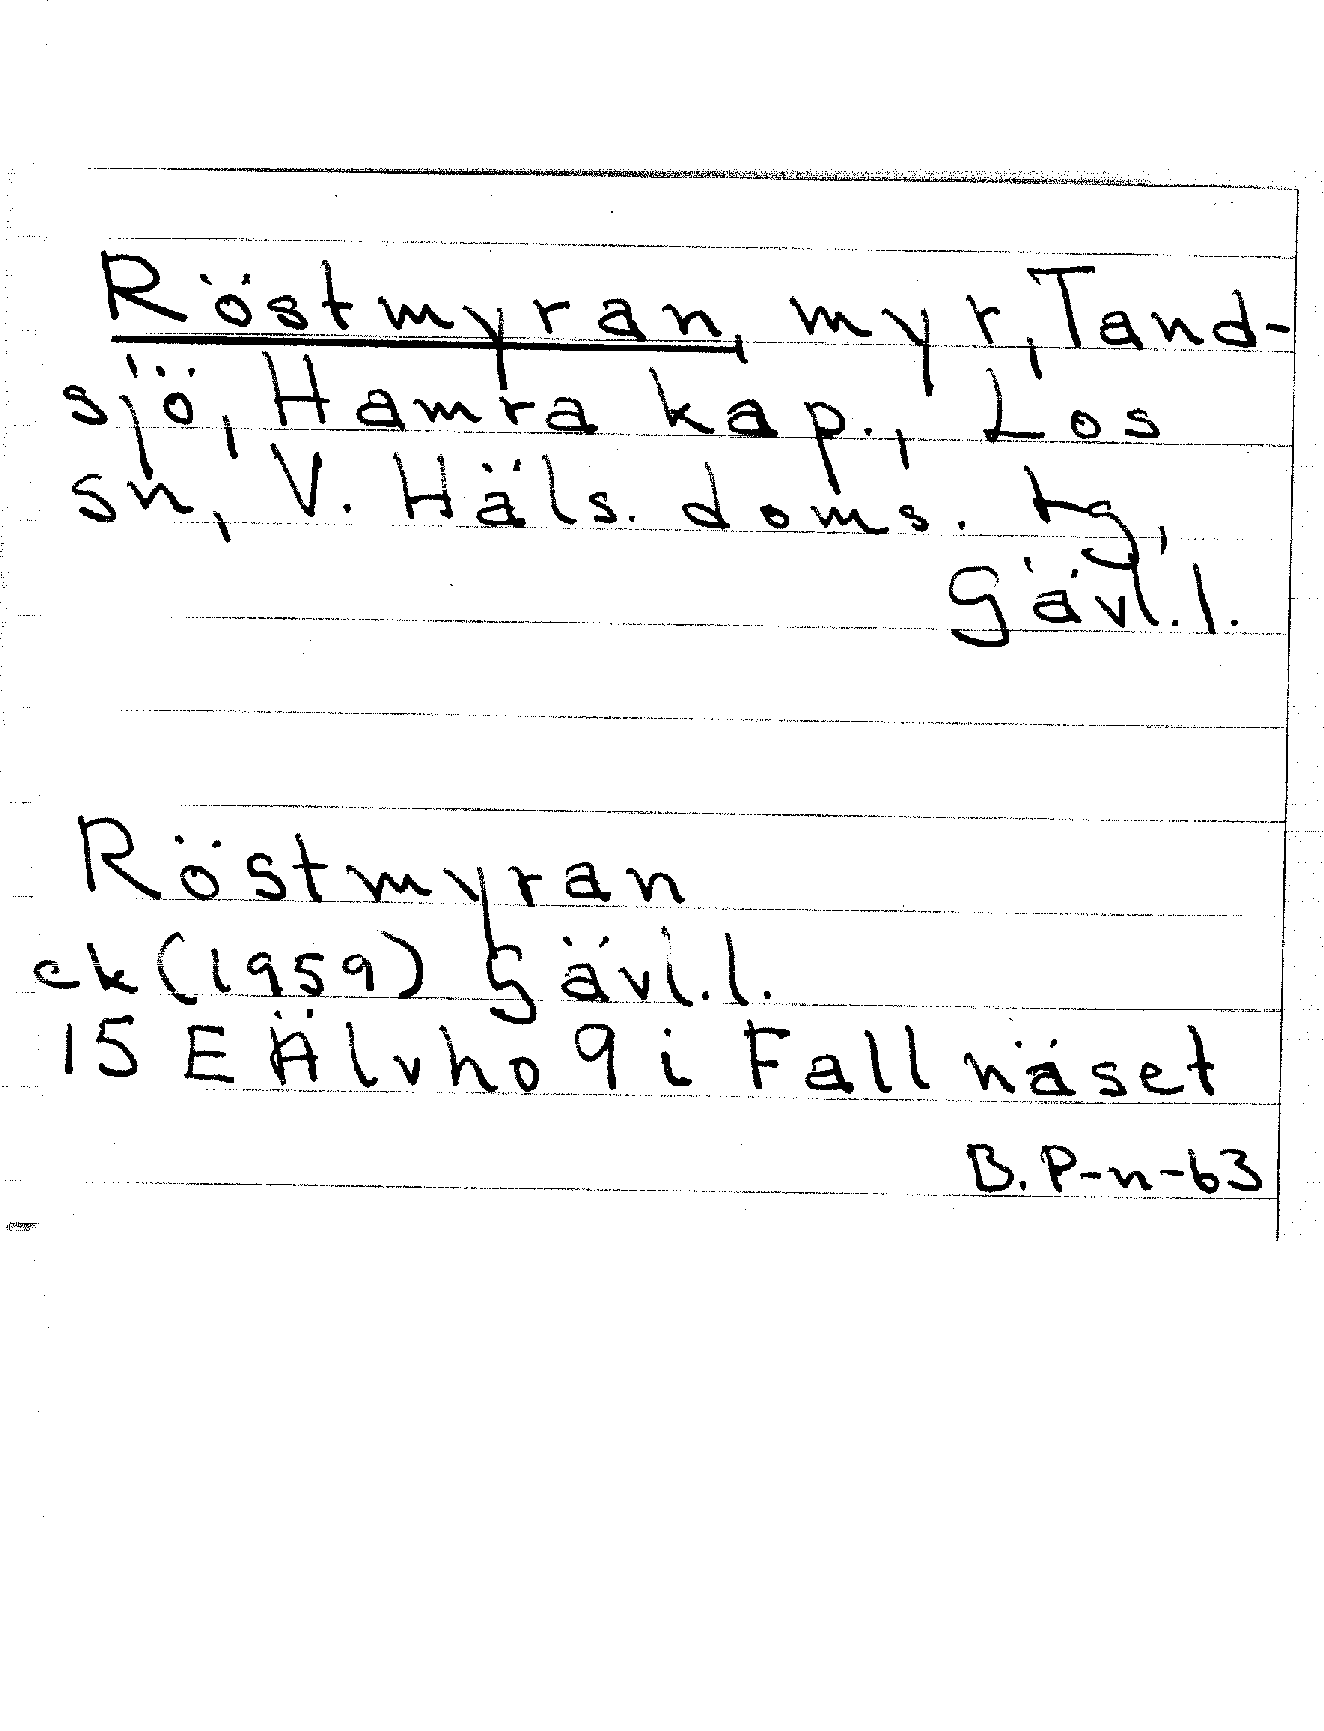 Röstmyran, myr, Tand-
sjö, Hamra kap., Los
sn, V. Häls. doms. tg,
Gävl.l.
Röstmyran
ek (1959) Gävl.l.
15 E Älvho 9 i Fallnäset
B. P-n-63